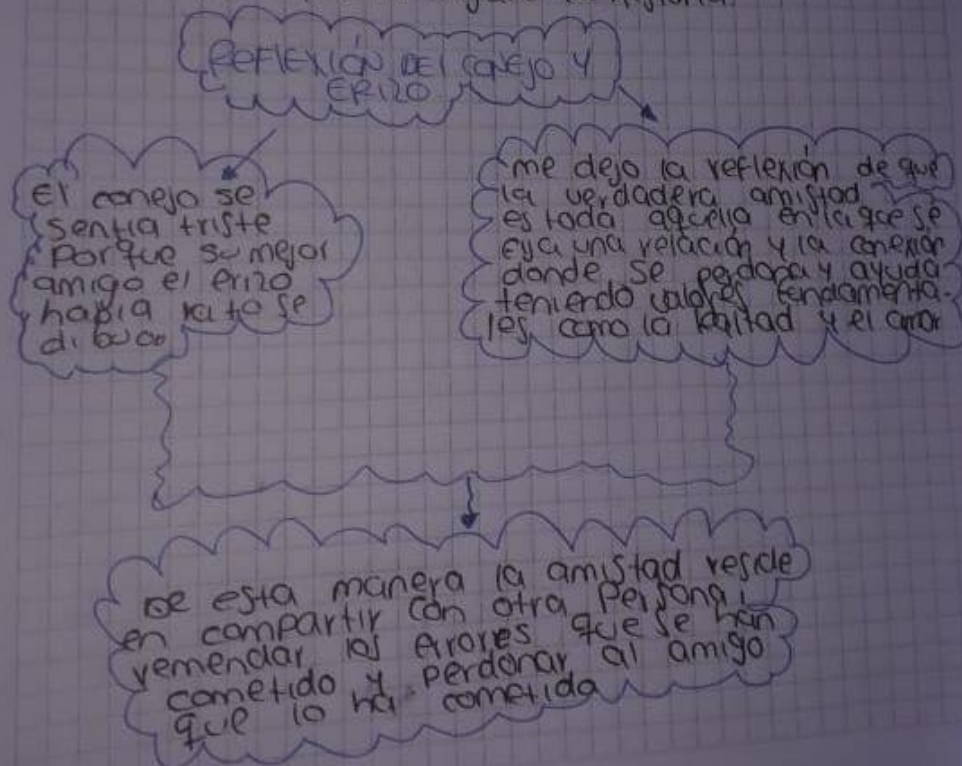 REFLEXIÓN DEL CONEJO Y
ERIZO
El conejo se
sentia triste
porque su mejor
amigo el erizo
habia roto se
dibujo
me dejo la reflexión de que
la verdadera amistad
es toda aquella en la que se
una relación y la conexion
donde se perdona y ayuda
teniendo valores fundamenta-
les como la lealtad y el amor
De esta manera la amistad reside
en compartir con otra persona,
remendar los errores que se han
cometido y perdonar al amigo
que lo ha cometida